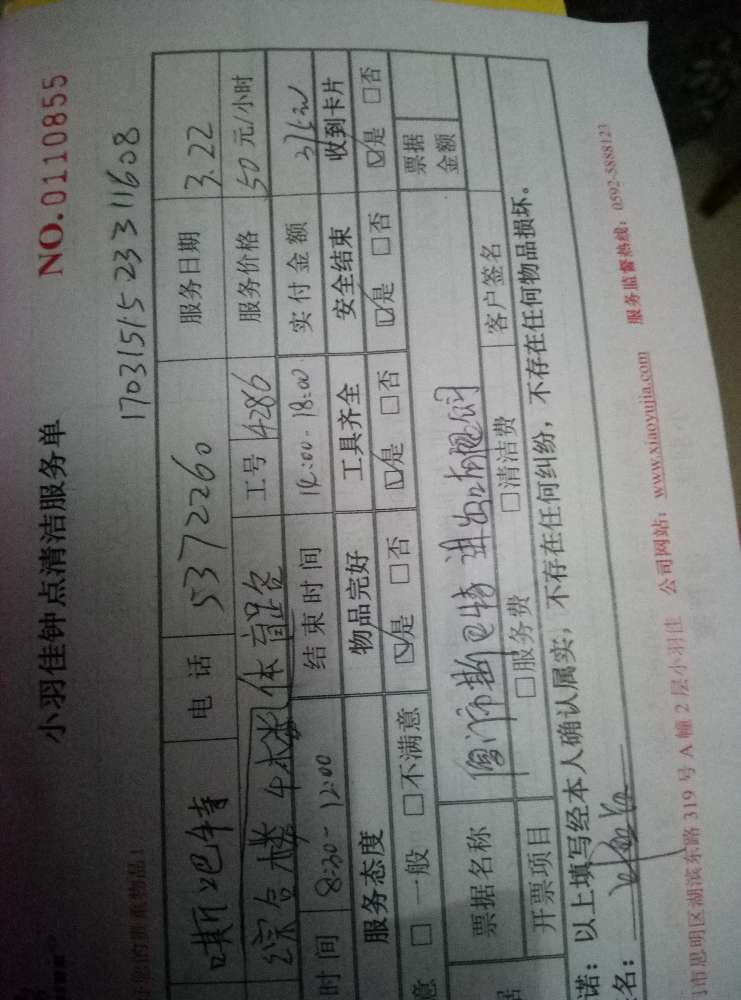 小羽佳钟点清洁服务单
NO.0110855
17031515 23311608
电话 5372260 服务日期 3.22
综合楼 体育 工号 4286 服务价格 50元/小时
时间 8:30-12:00 结束时间 14:00-18:00 实付金额
服务态度 物品完好 工具齐全 安全结束 收到卡片
意 □一般 □不满意 ☑是 □否 ☑是 □否 ☑是 □否 ☑是 □否
票据名称 厦门市斯巴特进出口有限公司 票据金额
开票项目 □服务费 □清洁费 客户签名
诺：以上填写经本人确认属实，不存在任何纠纷，不存在任何物品损坏。
名：
市思明区湖滨东路319号A幢2层小羽佳 公司网站：www.xiaoyujia.com 服务监督热线：0592-5888123